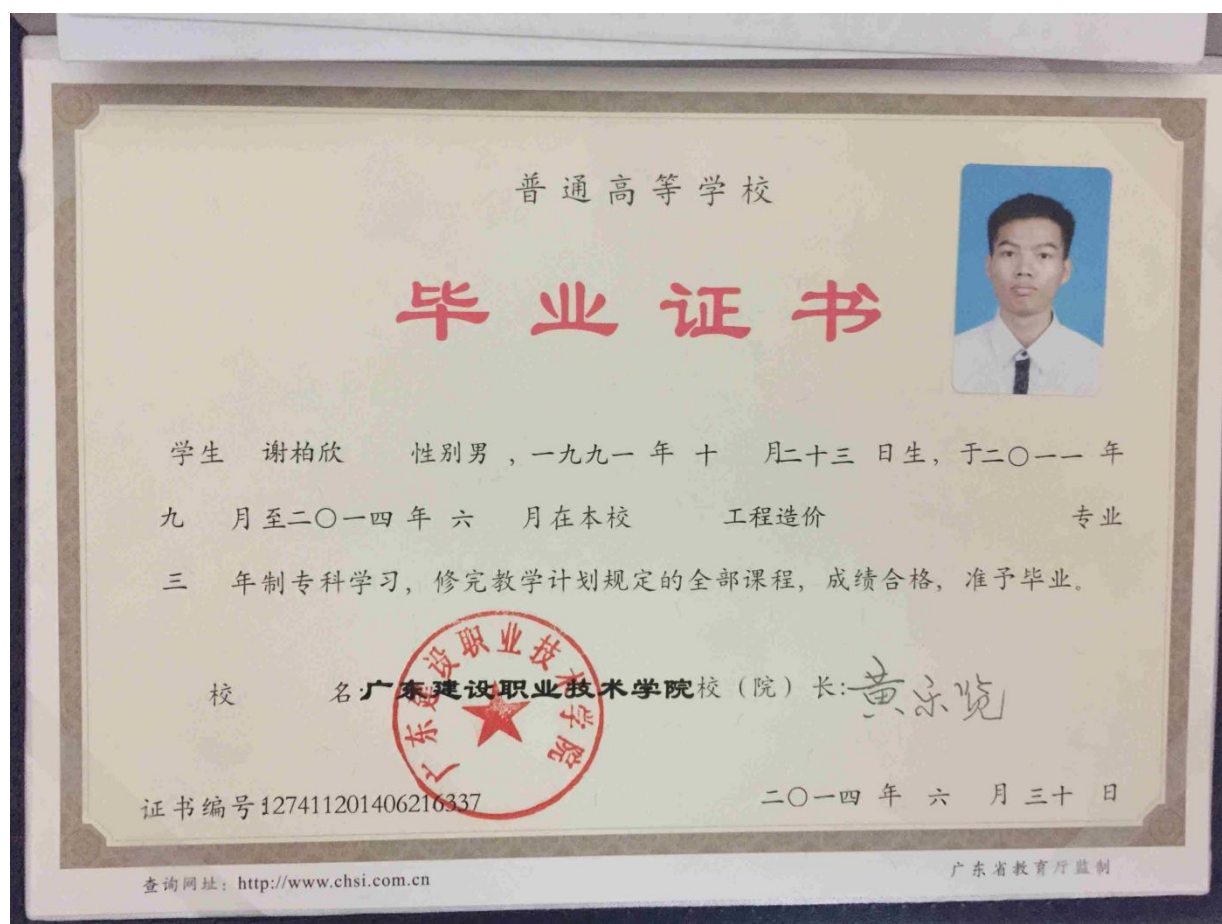 普通高等学校
毕业证书
学生 谢柏欣 性别男，一九九一 年 十 月二十三 日生，于二〇一一 年
九 月至二〇一四 年 六 月在本校 工程造价 专业
三 年制专科学习，修完教学计划规定的全部课程，成绩合格，准予毕业。
广东建设职业技术学院
校 名:广东建设职业技术学院校（院）长:
证书编号:127411201406216337
二〇一四 年 六 月 三十 日
查询网址：http://www.chsi.com.cn
广东省教育厅监制